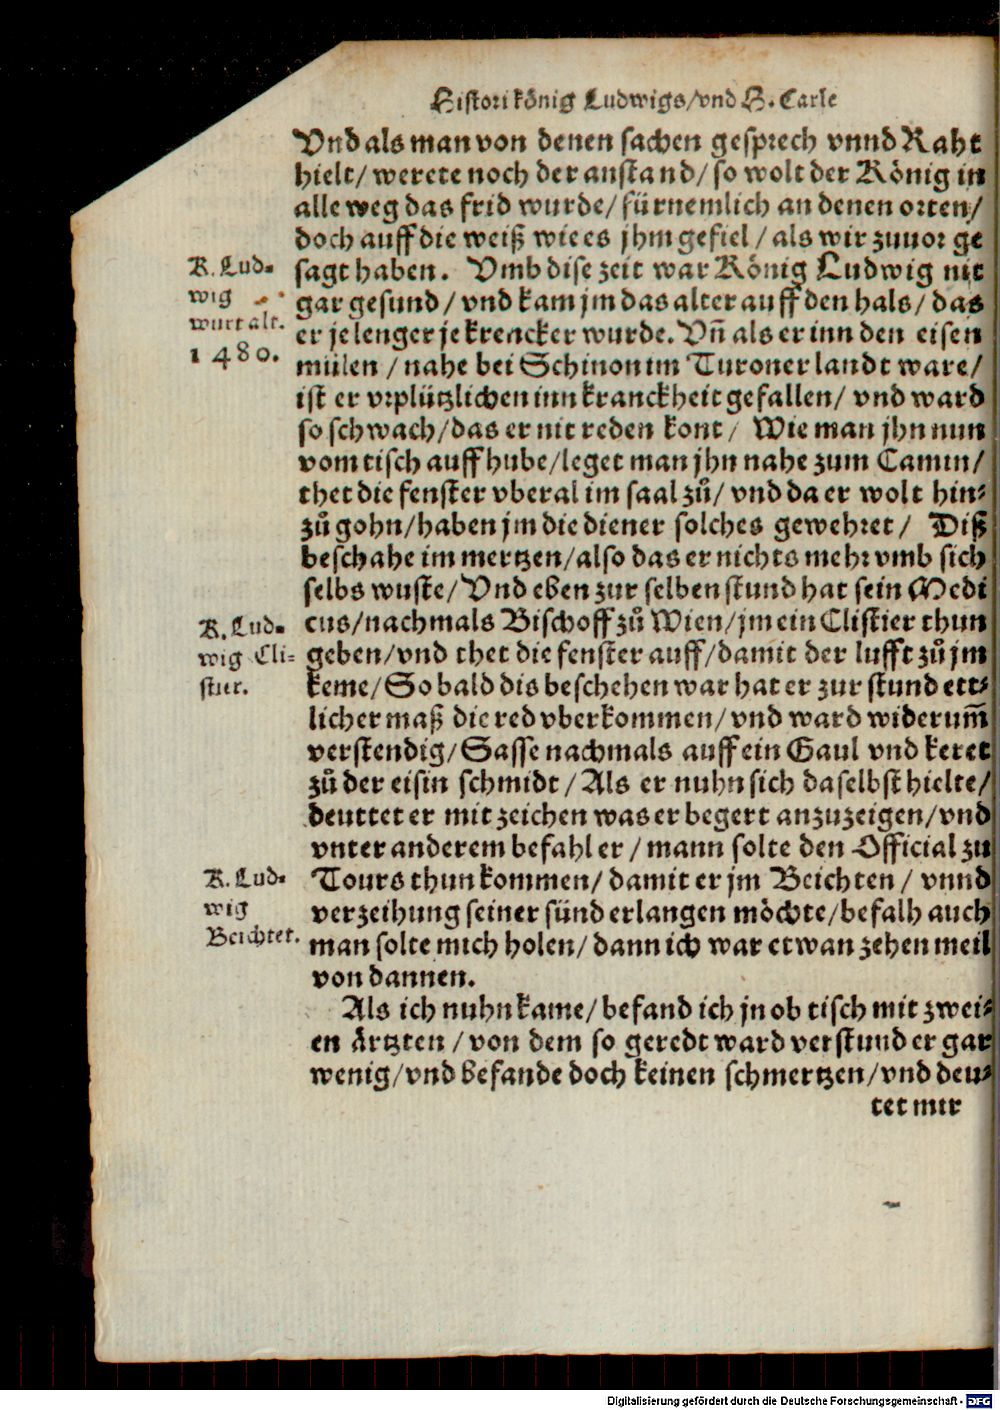 Histori könig Ludwigs/vnd H. Carle
Vnd als man von denen sachen gesprech vnnd Raht
hielt/ werete noch der anstand/ so wolt der König in
alle weg das frid wurde/ fürnemlich an denen orten/
doch auff die weiß wie es jhm gefiel / als wir zuuor ge
sagt haben. Vmb dise zeit war König Ludwig nit
gar gesund/ vnd kam jm das alter auff den hals/ das
er je lenger je krencker wurde. Vñ als er inn den eisen
mülen / nahe bei Schinon im Turoner landt ware/
ist er vrplützlichen inn kranckheit gefallen/ vnd ward
so schwach/das er nit reden kont/ Wie man jhn nun
vom tisch auff hube/leget man jhn nahe zum Camin/
thet die fenster vberal im saal zů/ vnd da er wolt hin⸗
zů gohn/haben jm die diener solches gewehret/ Diß
beschahe im mertzen/also das er nichts mehr vmb sich
selbs wuste/ Vnd eben zur selben stund hat sein Medi
cus/nachmals Bischoff zů Wien/jm ein Clistier thun
geben/vnd thet die fenster auff/damit der lufft zů jm
keme/ So bald dis beschehen war hat er zur stund ett⸗
licher maß die red vberkommen/ vnd ward widerum̃
verstendig/ Sasse nachmals auff ein Gaul vnd keret
zů der eisin schmidt / Als er nuhn sich daselbst hielte/
deuttet er mit zeichen was er begert anzuzeigen/vnd
vnter anderem befahl er / mann solte den Official zu
Tours thun kommen/ damit er jm Beichten / vnnd
verzeihung seiner sünd erlangen möchte/befalh auch
man solte mich holen/ dann ich war etwan zehen meil
von dannen.
Als ich nuhn kame/ befand ich jn ob tisch mit zwei⸗
en ärtzten / von dem so geredt ward verstund er gar
wenig/vnd befande doch keinen schmertzen/vnd deu⸗
tet mir
K. Lud⸗
wig
wurt alt.
1480.
K. Lud⸗
wig Cli⸗
stier.
K. Lud⸗
wig
Beichtet.
Digitalisierung gefördert durch die Deutsche Forschungsgemeinschaft - DFG